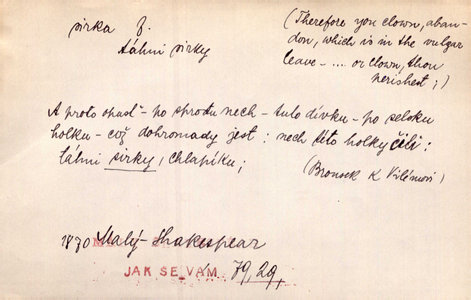 sirka f.
táhni sirky
(Therefore you clown, aban-
don, which is in the vulgar
leave – .... or clown, thou
perishest;)
A proto opusť – po sprostu nech – tuto dívku – po selsku
holku – což dohromady jest: nech této holky čili:
táhni sirky, chlapíku;
(Brousek k Vilémovi)
1870 Malý – Shakespear
JAK SE VÁM 79, 29,